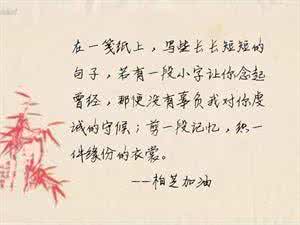 在一笺纸上，写些长长短短的
句子，若有一段小字让你念起
曾经，那便没有辜负我对你虔
诚的守候；剪一段记忆，织一
件缘份的衣裳。
--柏芝加油